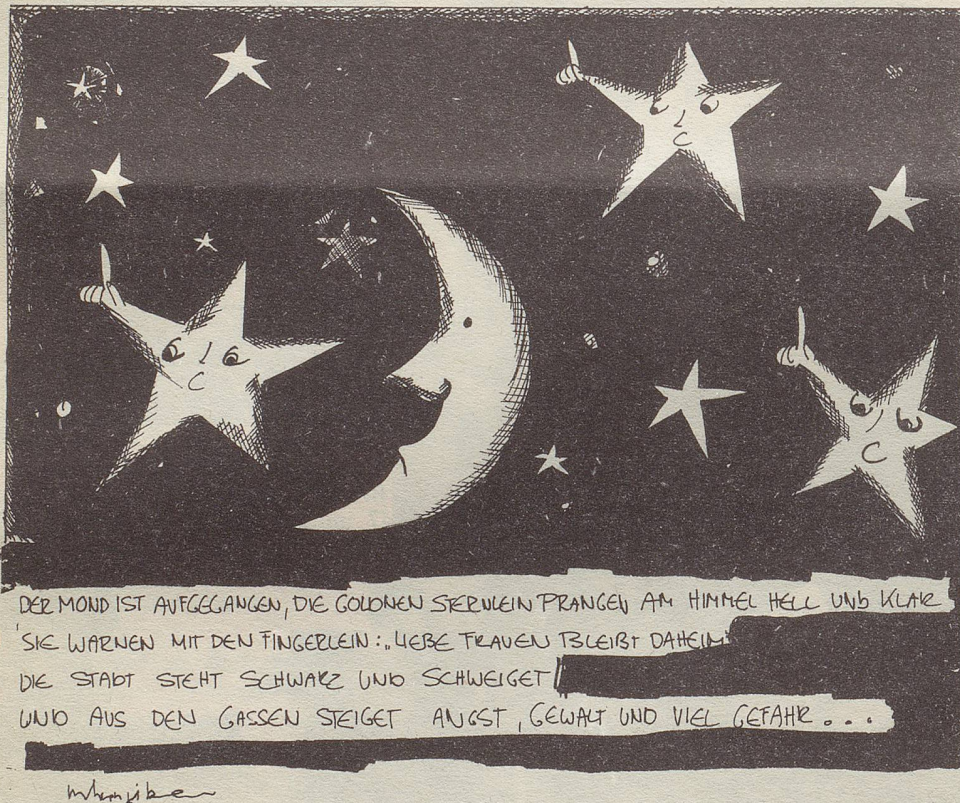 DER MOND IST AUFGEGANGEN, DIE GOLDNEN STERNLEIN PRANGEN AM HIMMEL HELL UND KLAR
SIE WARNEN MIT DEN FINGERLEIN: „LIEBE FRAUEN BLEIBT DAHEIM"
DIE STADT STEHT SCHWARZ UND SCHWEIGET
UND AUS DEN GASSEN STEIGET ANGST, GEWALT UND VIEL GEFAHR...